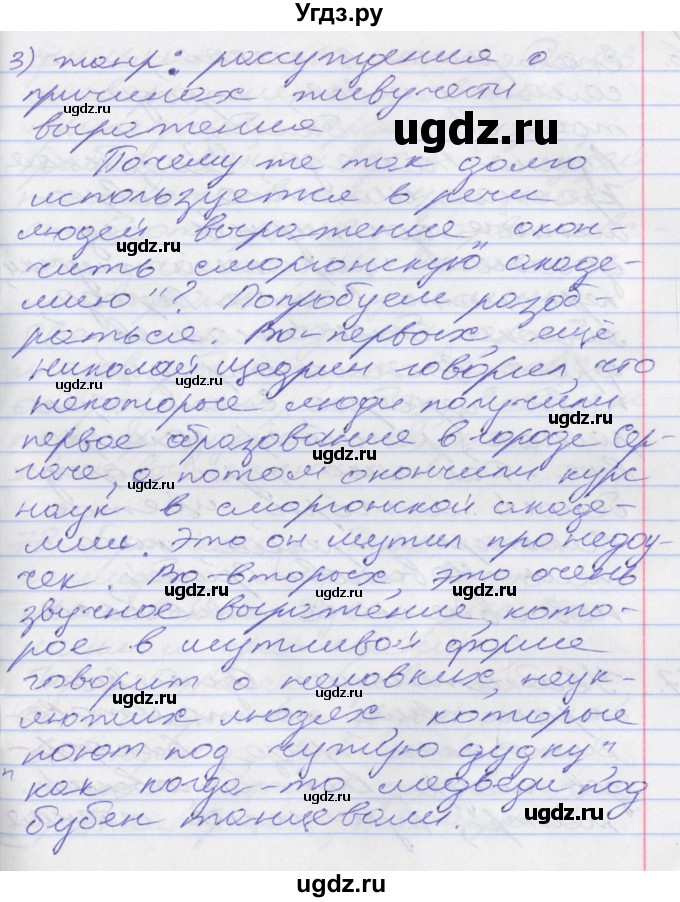 Угдз.ру
3) жанр: рассуждения о
причинах живучести
выражения
ugdz.ru
Почему же так долго
используется в речи
ugdz.ru
людей выражение „окон-
ugdz.ru
чить сморгонскую акаде-
мию"? Попробуем разоб-
ugdz.ru
раться. Во-первых, ещё
Николай Щедрин говорил, что
ugdz.ru ugdz.ru
некоторые люди получили
ugdz.ru
первое образование в городе Сер-
ugdz.ru
гаче, а потом окончили курс
ugdz.ru
наук в сморгонской акаде-
мии. Это он шутил про недоу-
чек. Во-вторых, это очень
ugdz.ru ugdz.ru
звучное выражение, кото-
рое в шутливой форме
ugdz.ru
говорит о неловких, неук-
ugdz.ru
люжих людях, которые
поют под чужую дудку",
"как когда-то медведи под
ugdz.ru ugdz.ru
бубен танцевали.
ugdz.ru